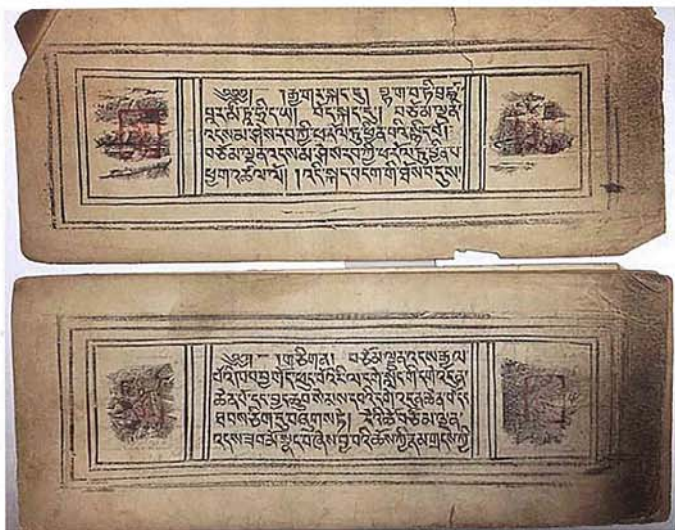 ༄༅༅། །རྒྱ་གར་སྐད་དུ། བྷ་ག་བ་ཏི་པྲཛྙཱ་
པཱར་མི་ཏཱ་ཧྲི་ད་ཡ། བོད་སྐད་དུ། བཅོམ་ལྡན་
འདས་མ་ཤེས་རབ་ཀྱི་ཕ་རོལ་ཏུ་ཕྱིན་པའི་སྙིང་པོ།
བཅོམ་ལྡན་འདས་མ་ཤེས་རབ་ཀྱི་ཕ་རོལ་ཏུ་ཕྱིན་པ་
ཕྱག་འཚལ་ལོ། །འདི་སྐད་བདག་གི་ཐོས་པ་དུས།
༄༅༅། །གཅིག་ན། བཅོམ་ལྡན་འདས་རྒྱལ་
པོའི་ཁབ་བྱ་རྒོད་ཕུང་པོའི་རི་ལ་དགེ་སློང་གི་དགེ་འདུན་
ཆེན་པོ་དང་བྱང་ཆུབ་སེམས་དཔའི་དགེ་འདུན་ཆེན་པོ་དང་
ཐབས་ཅིག་དུ་བཞུགས་ཏེ། དེའི་ཚེ་བཅོམ་ལྡན་
འདས་ཟབ་མོ་སྣང་བ་ཞེས་བྱ་བའི་ཆོས་ཀྱི་རྣམ་གྲངས་ཀྱི་